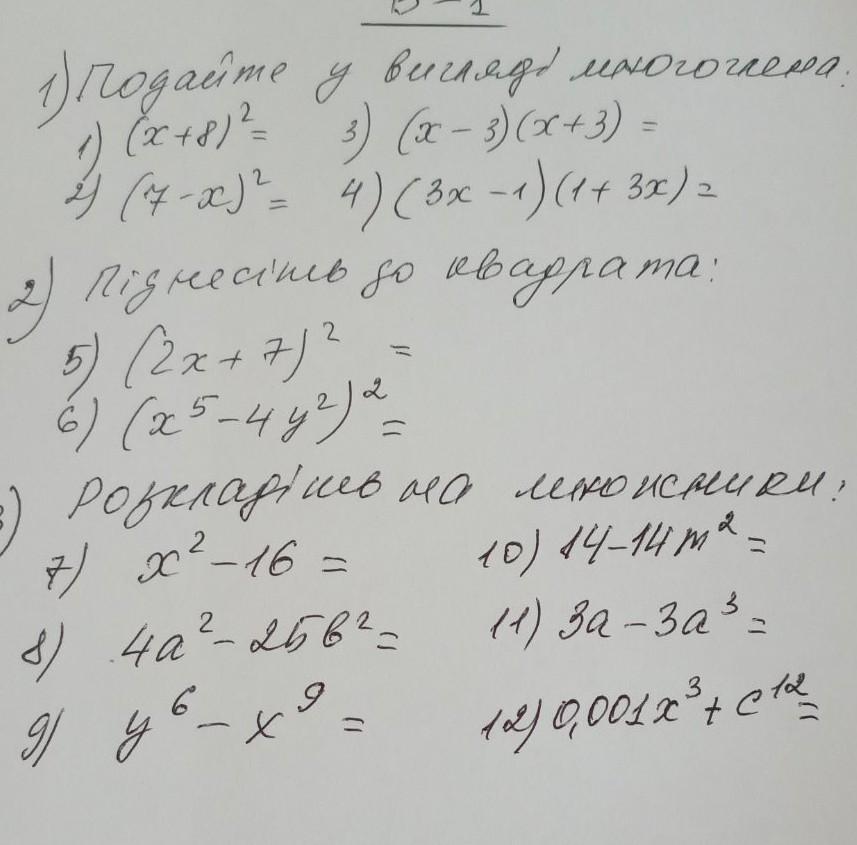 В-1
1) Подайте у вигляді многочлена:
1) (x+8)² = 3) (x - 3)(x+3) =
2) (7-x)² = 4) (3x -1)(1+ 3x) =
2) Піднесіть до квадрата:
5) (2x + 7)² =
6) (x⁵ - 4y²)² =
3) Розкладіть на множники:
7) x² - 16 = 10) 14 - 14m² =
8) 4a² - 25b² = 11) 3a - 3a³ =
9) y⁶ - x⁹ = 12) 0,001x³ + c¹² =